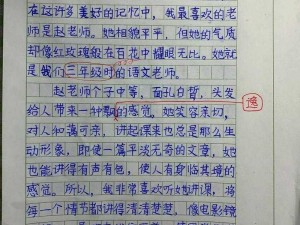 在这许多美好的记忆中,我最喜欢的老
师是赵老师。她相貌平平,但她的气质
却像红玫瑰般在百花中耀眼无比。她就
是我们三年级时的语文老师。
赵老师个子中等,面孔白皙,头发
给人带来一种飘的感觉。她笑容亲切,
逸
对人和蔼可亲,讲起课来也总是那么生
动形象,即使一篇平淡无奇的文章,她
也能讲得有声有色,使人有身临其境的
感觉。所以,我非常喜欢听她讲课,将
每一个情节都讲得清清楚楚,像电影镜